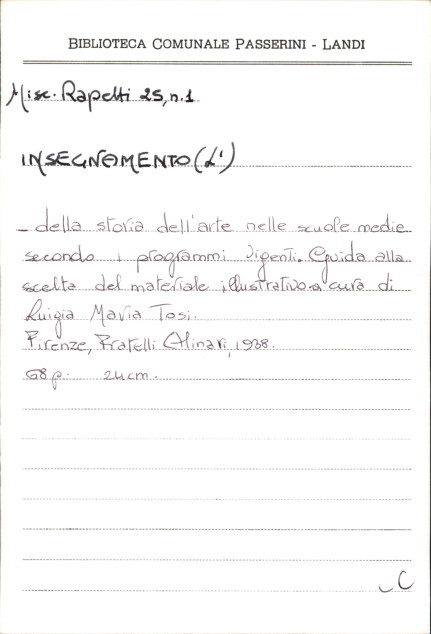 BIBLIOTECA COMUNALE PASSERINI - LANDI
Misc. Rapetti 25, n.1
INSEGNAMENTO (L')
- della storia dell'arte nelle scuole medie
secondo i programmi vigenti. Guida alla
scelta del materiale illustrativo a cura di
Luigia Maria Tosi.
Firenze, Fratelli Alinari, 1938.
68 p. 24 cm.